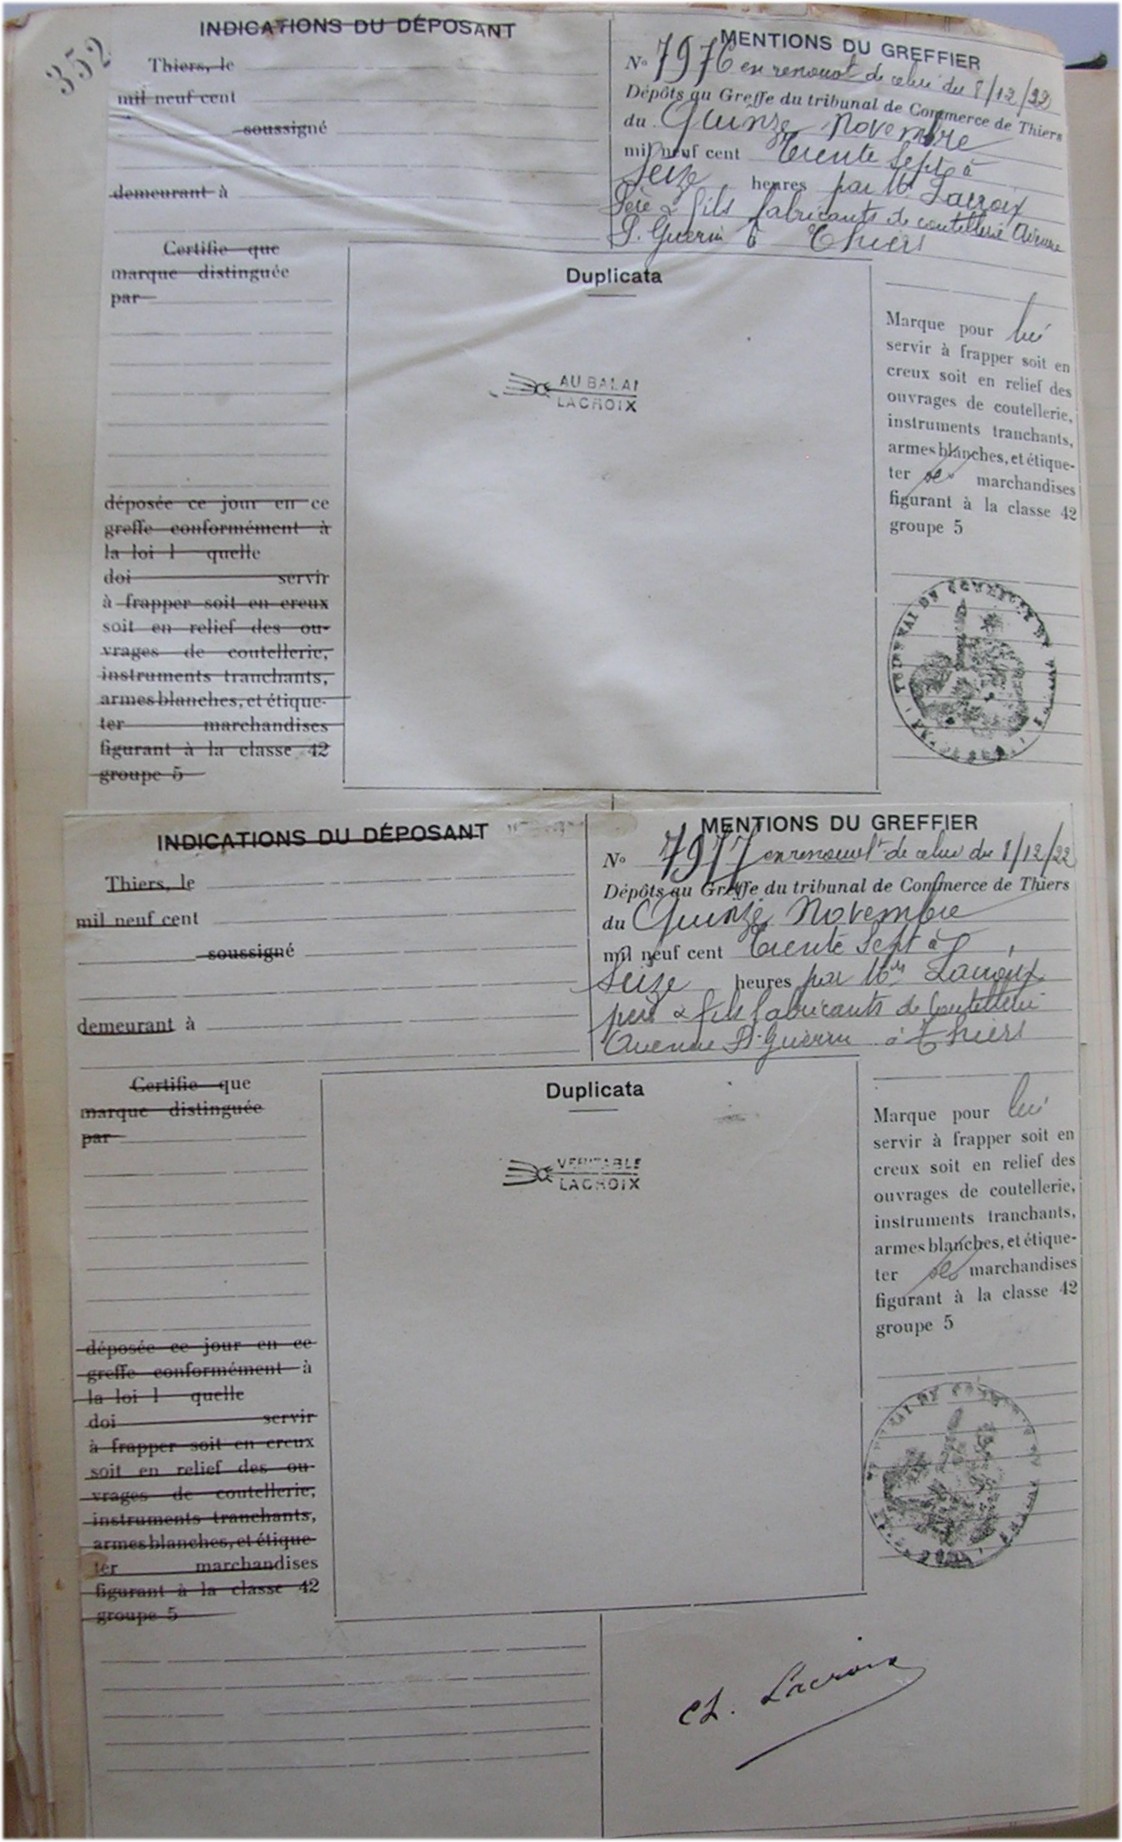 352
INDICATIONS DU DÉPOSANT
Thiers, le
mil neuf cent
soussigné
demeurant à
Certifie que
marque distinguée
par
déposée ce jour en ce
greffe conformément à
la loi l quelle
doi servir
à frapper soit en creux
soit en relief des ou-
vrages de coutellerie,
instruments tranchants,
armes blanches, et étique-
ter marchandises
figurant à la classe 42
groupe 5
MENTIONS DU GREFFIER
No 7976 en renouvt de celui du 8/12/22
Dépôts au Greffe du tribunal de Commerce de Thiers
du Quinze Novembre
mil neuf cent Trente Sept à
Seize heures par Mr Lacroix
Père & fils fabricants de coutellerie Avenue
P. Guerin à Thiers
Duplicata
AU BALAI
LACROIX
Marque pour lui
servir à frapper soit en
creux soit en relief des
ouvrages de coutellerie,
instruments tranchants,
armes blanches, et étique-
ter ses marchandises
figurant à la classe 42
groupe 5
TRIBUNAL DE COMMERCE DE
INDICATIONS DU DÉPOSANT
Thiers, le
mil neuf cent
soussigné
demeurant à
Certifie que
marque distinguée
par
déposée ce jour en ce
greffe conformément à
la loi l quelle
doi servir
à frapper soit en creux
soit en relief des ou-
vrages de coutellerie,
instruments tranchants,
armes blanches, et étique-
ter marchandises
figurant à la classe 42
groupe 5
MENTIONS DU GREFFIER
No 7977 en renouvt de celui du 8/12/22
Dépôts au Greffe du tribunal de Commerce de Thiers
du Quinze Novembre
mil neuf cent Trente Sept à
Seize heures par Mrs Lacroix
père & fils fabricants de Coutellerie
Avenue P. Guerin à Thiers
Duplicata
VERITABLE
LACROIX
Marque pour lui
servir à frapper soit en
creux soit en relief des
ouvrages de coutellerie,
instruments tranchants,
armes blanches, et étique-
ter ses marchandises
figurant à la classe 42
groupe 5
Ch. Lacroix